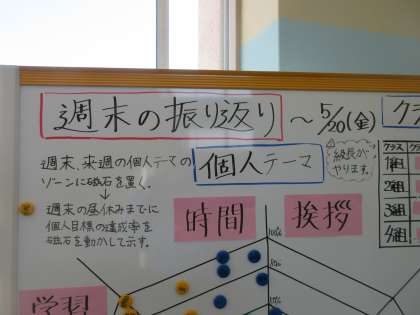 週末の振り返り ～5/20(金)
週末、来週の個人テーマの
ゾーンに磁石を置く。
↓
週末の昼休みまでに
個人目標の達成率を
磁石を動かして示す。
個人テーマ
級長が
やります。
時間
挨拶
学習
100%
クラス
1組
2組
3組
4組